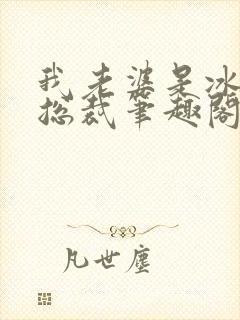 我老婆是冰
总裁笔趣阁
凡世尘